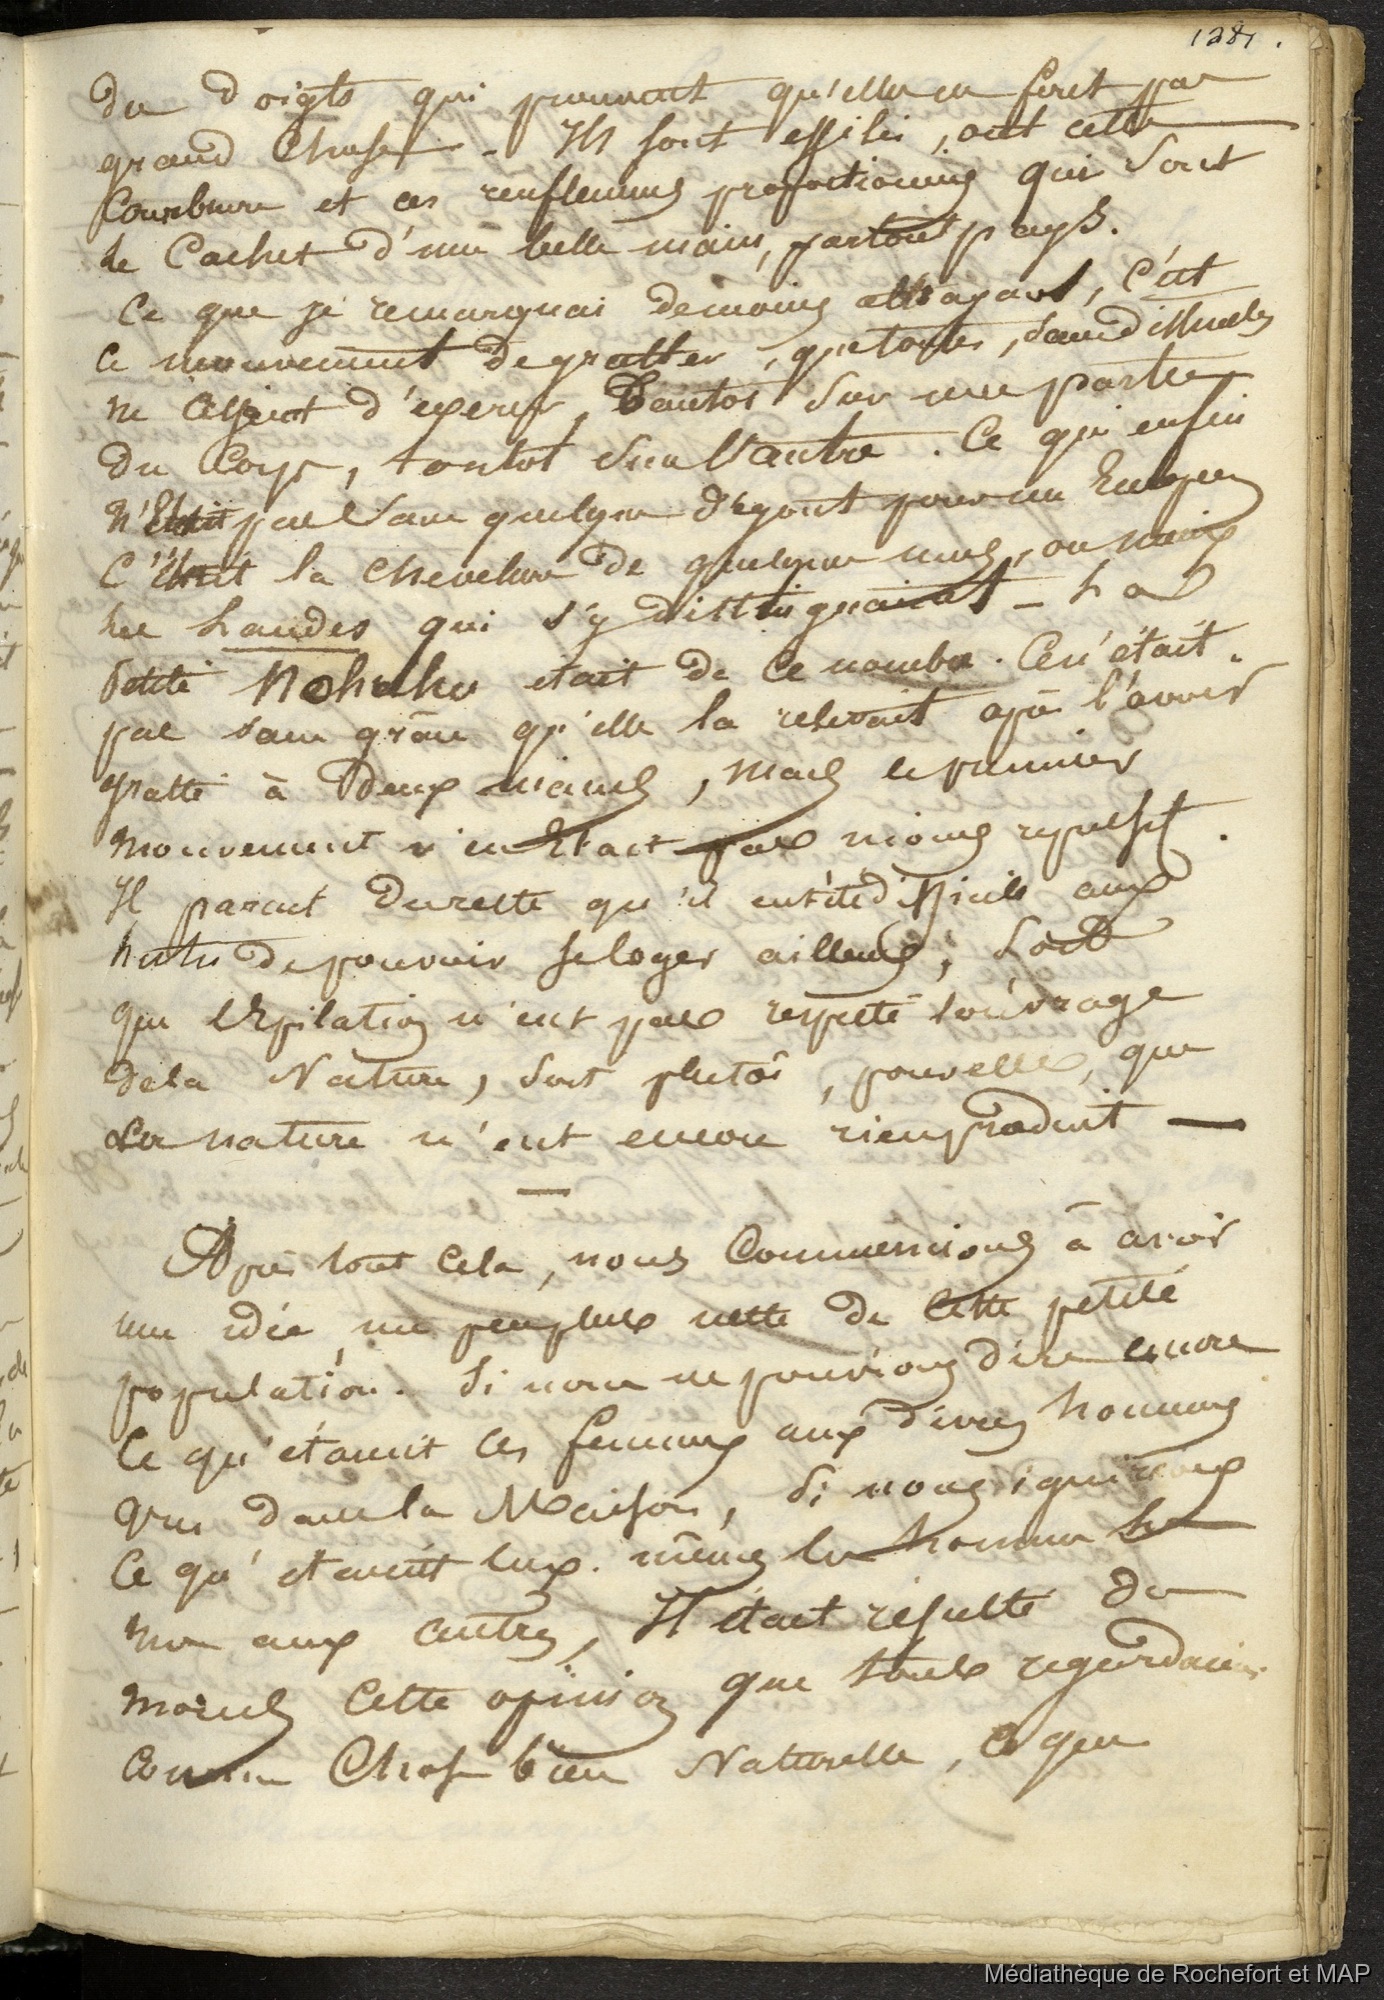 1281.
des doigts qui prouvent qu'elles ne font pas
grand chose - Ils sont effilés, ont cette
Courbure et ces renflemens proportionnés qui sont
le Cachet d'une belle main, partout pays.
Ce que je remarquai de moins attrayant, C'est
ce mouvement de gratter, que toutes, sans
ne cessaient d'exercer, tantot sur une partie
du Corps, tantot sur l'autre. Ce qui enfin
n'était pas sans quelque dégout pour un Européen
C'était la chevelure de quelques unes, ou mieux
les qui s'y distinguaient - La
petite Nohuhu etait de ce nombre. Ce n'était
pas sans grâce qu'elle la relevait après l'avoir
gratté à deux mains, mais le premier
mouvement n'en etait pas moins repulsif.
Il parait du reste qu'il eut été difficile aux
hutus de pouvoir se loger ailleurs, soit
que l'Epilation n'eut pas respecté l'ouvrage
dela Nature, soit plutôt, pour elles, que
La nature n'eut encore rien produit —
—
Après tout Cela, nous Commencions à avoir
une idée un peu plus nette de Cette petite
population. Si nous ne pouvions dire encore
Ce qu'étaient ces femmes aux divers hommes
vus dans la Maison, Si nous ignorions
Ce qu'etaient eux-mêmes les hommes les
uns aux autres, Il était résulté du
moins Cette opinion que tous regardaient
Comme Chose bien Naturelle, Ce que
Médiathèque de Rochefort et MAP